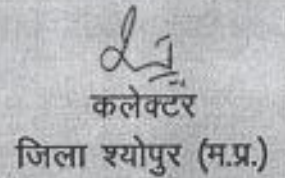 कलेक्टर
जिला श्योपुर (म.प्र.)